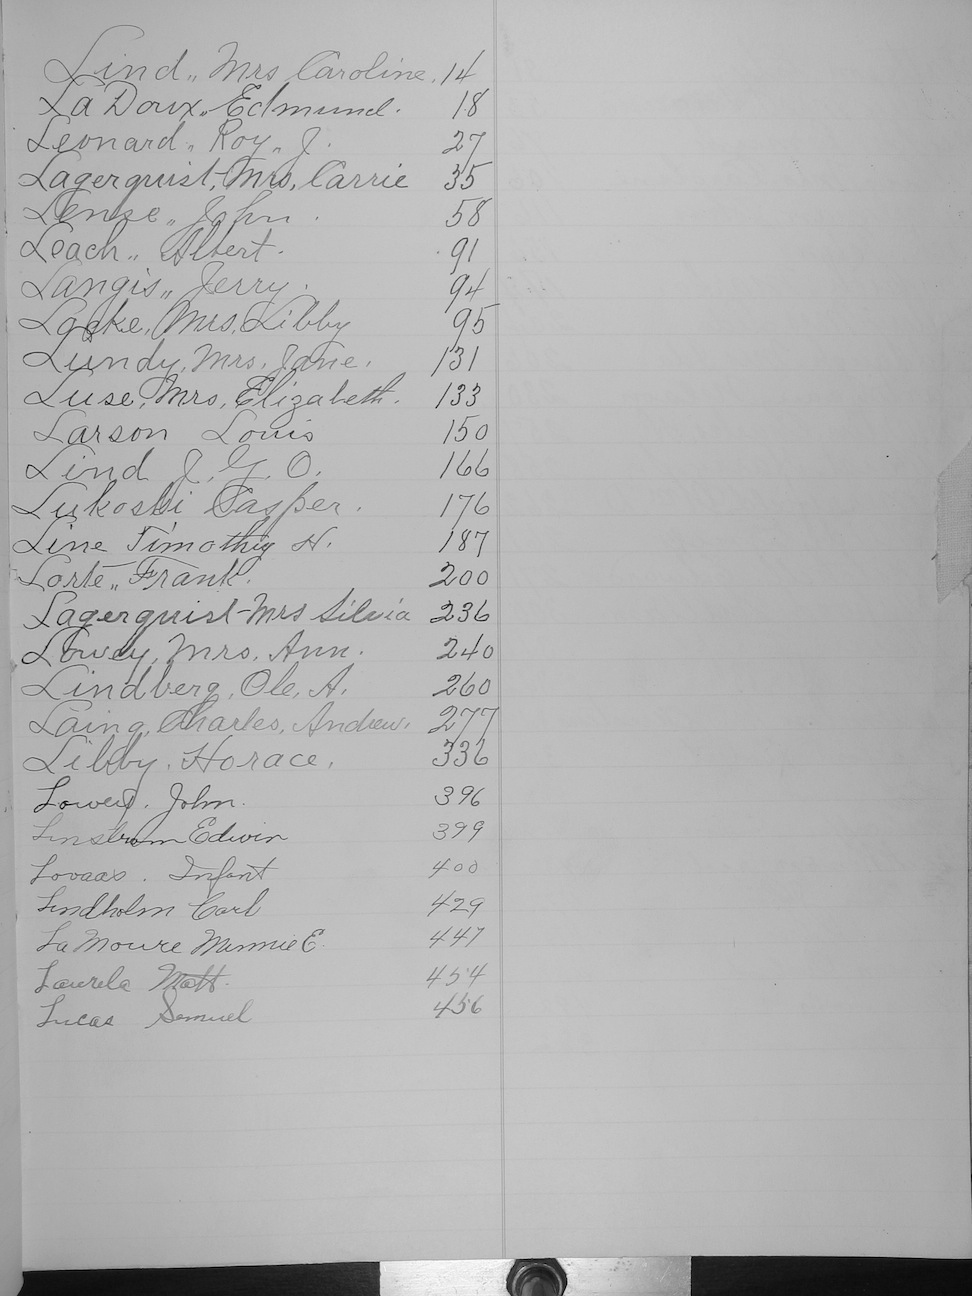 Lind,, Mrs Caroline. 14
La Doux,, Edmund. 18
Leonard,, Roy,, J. 27
Lagerquist, Mrs, Carrie 35
Lense,, John. 58
Leach,, Albert. 91
Langis,, Jerry. 94
Locke, Mrs, Libby 95
Lundy, Mrs, Jane. 131
Luse, Mrs, Elizabeth. 133
Larson Louis 150
Lind J. G. O. 166
Lukoski Casper. 176
Line Timothy H. 187
Lorte,, Frank. 200
Lagerquist-Mrs Silvia 236
Lowey, Mrs, Ann. 240
Lindberg, Ole, A. 260
Laing, Charles, Andrew. 277
Libby, Horace. 336
Lowey, John. 396
Linstrom Edwin 399
Lovaas. Infant 400
Lindholm Carl 429
La Moure Minnie E. 447
Laurela Matt. 454
Lucas Samuel 456